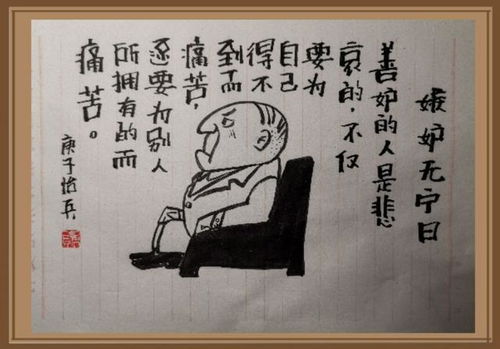 嫉妒无宁日
善妒的人是悲
哀的，不仅
要为
自己
得不
到而
痛苦，
还要为别人
所拥有的而
痛苦。
庚子怡兵